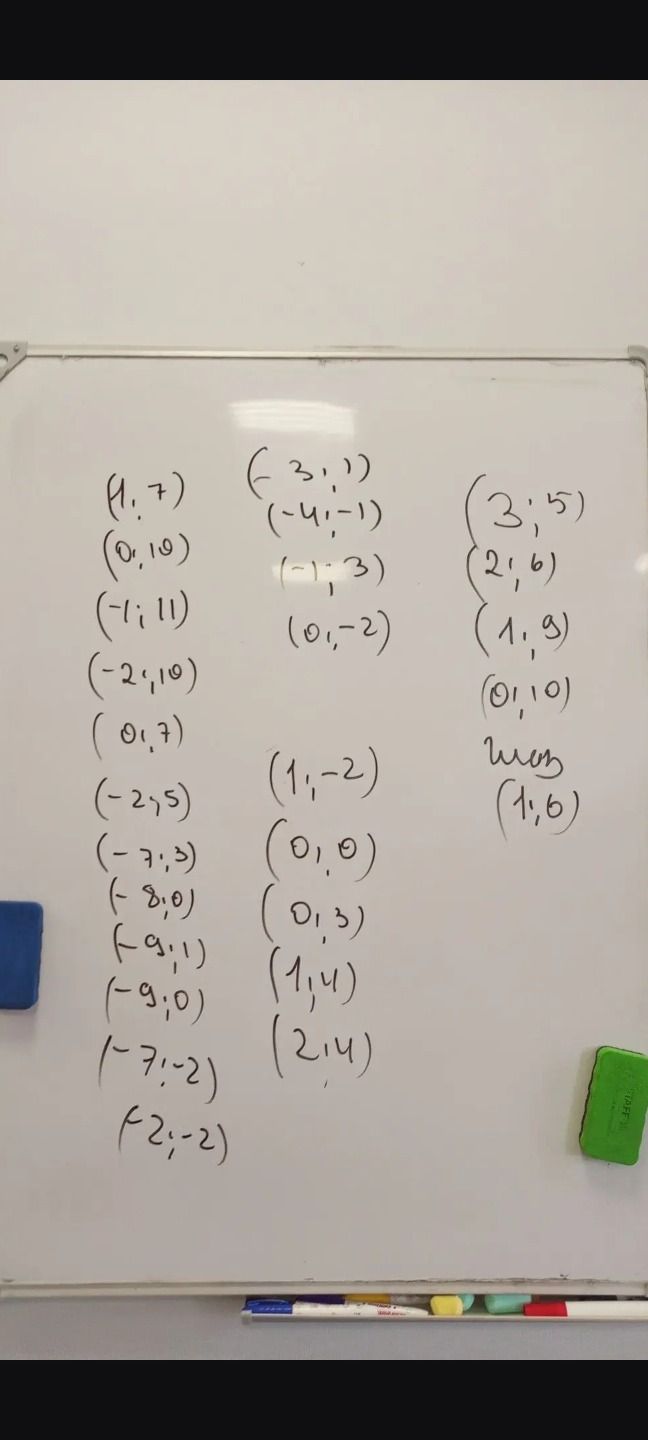 (1; 7)
(0; 10)
(-1; 11)
(-2; 10)
(0; 7)
(-2; 5)
(-7; 3)
(-8; 0)
(-9; 1)
(-9; 0)
(-7; -2)
(-2; -2)
(-3; 1)
(-4; -1)
(-1; 3)
(0; -2)
(1; -2)
(0; 0)
(0; 3)
(1; 4)
(2; 4)
(3; 5)
(2; 6)
(1; 9)
(0; 10)
глаз
(1; 6)